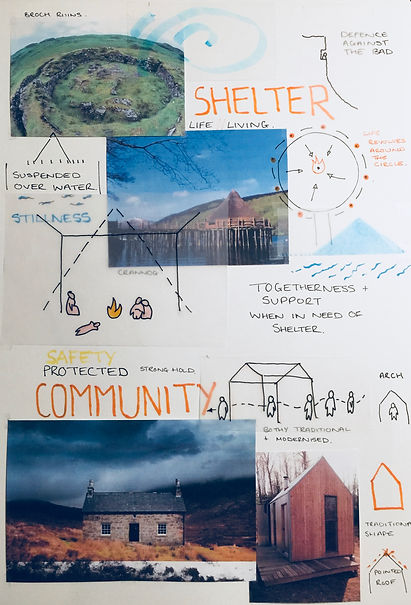 BROCH RUINS.
DEFENCE
AGAINST
THE BAD
SHELTER
LIFE / LIVING.
LIFE
REVOLVES
AROUND
THE
CIRCLE.
SUSPENDED
OVER WATER
STILLNESS
CRANNOG
TOGETHERNESS +
SUPPORT
WHEN IN NEED OF
SHELTER.
SAFETY
PROTECTED
STRONG HOLD.
COMMUNITY
ARCH
BOTHY TRADITIONAL
+ MODERNISED.
TRADITIONAL
SHAPE
POINTED
ROOF